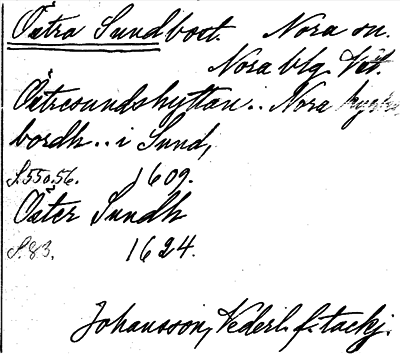 Östra Sundbort. Nora sn.
Nora blg. Vstl.
Östresundshyttan.. Nora
bordh.. i Sund,
S.550.56. 1609.
Öster Sundh
S.83. 1624.
Johansson, Vederl. f. tackj.